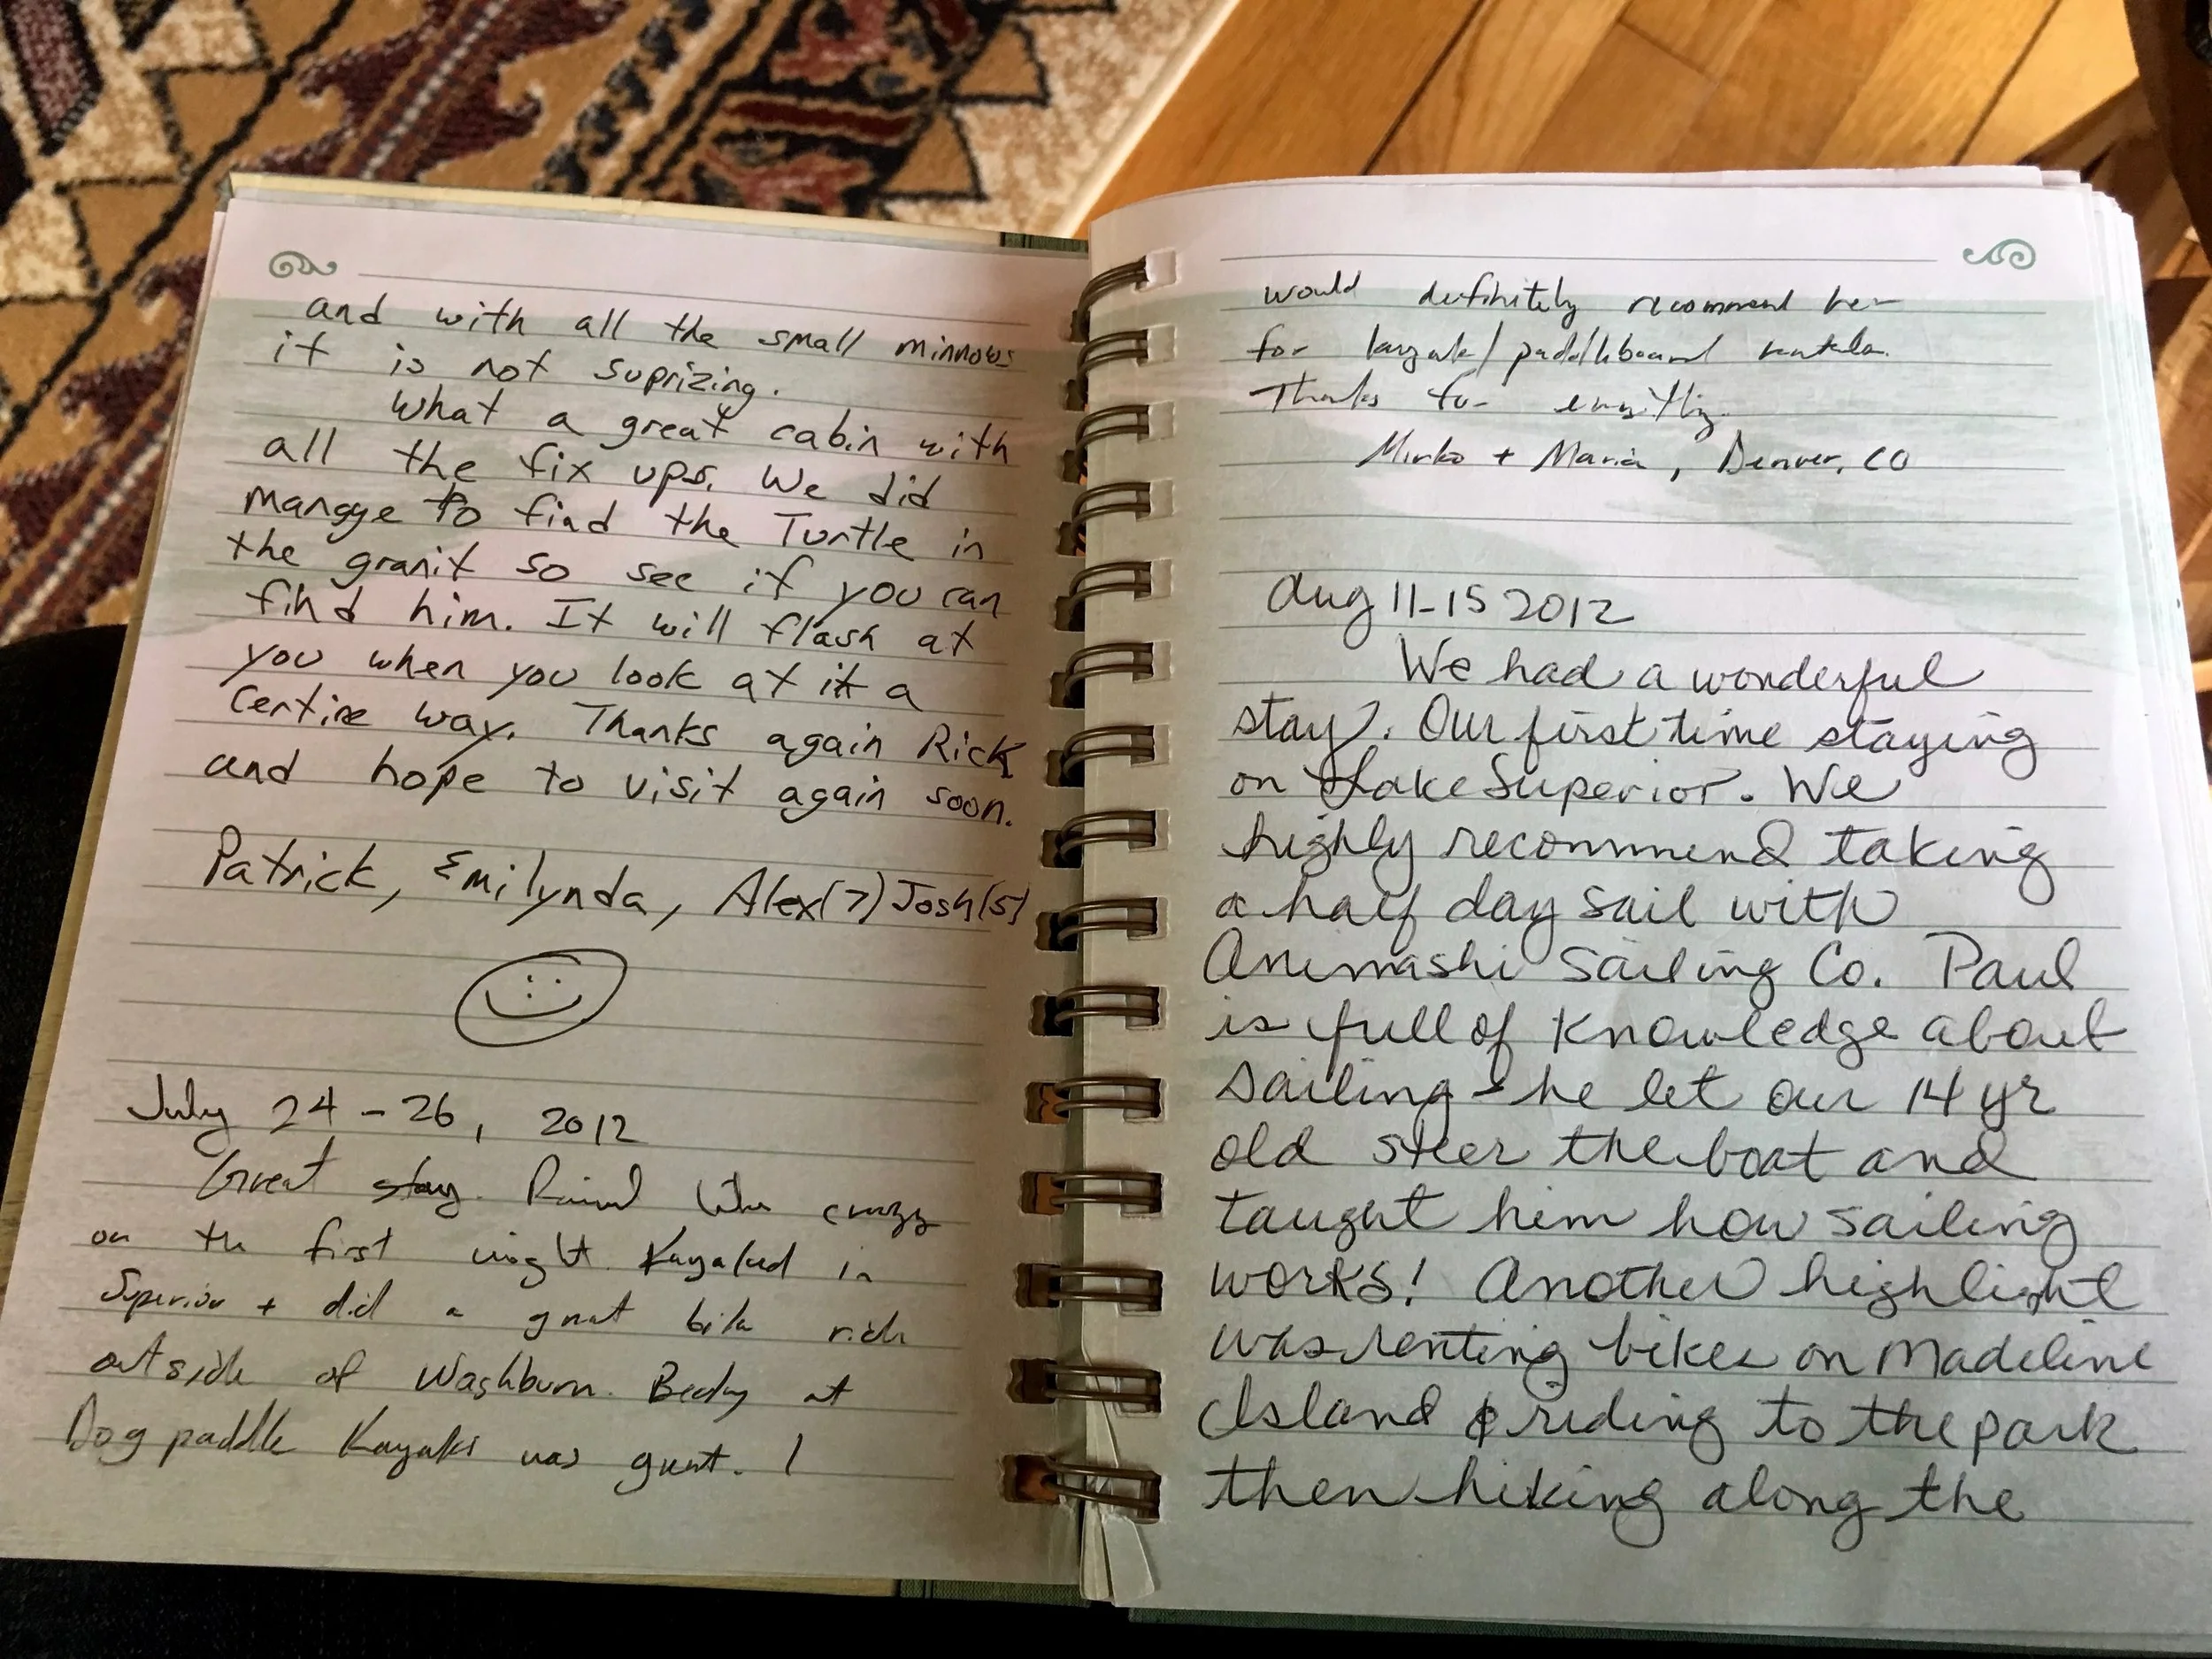 and with all the small minnows
it is not suprizing.
What a great cabin with
all the fix ups. We did
mangye to find the Turtle in
the granit so see if you can
find him. It will flash at
you when you look at it a
certine way. Thanks again Rick
and hope to visit again soon.
Patrick, Emilynda, Alex(7) Josh(5)
July 24-26, 2012
Great stay. Rained like crazy
on the first night. Kayaked in
Superior + did a great bike ride
outside of Washburn. Becky at
Dog paddle Kayaks was great. I
would definitely recommend her
for kayak/paddleboard rentals.
Thanks for everything.
Mirko + Maria, Denver, CO
Aug 11-15 2012
We had a wonderful
stay. Our first time staying
on Lake Superior. We
highly recommend taking
a half day sail with
Animashi Sailing Co. Paul
is full of knowledge about
sailing - he let our 14 yr
old steer the boat and
taught him how sailing
works! Another highlight
was renting bikes on Madeline
Island & riding to the park
then hiking along the